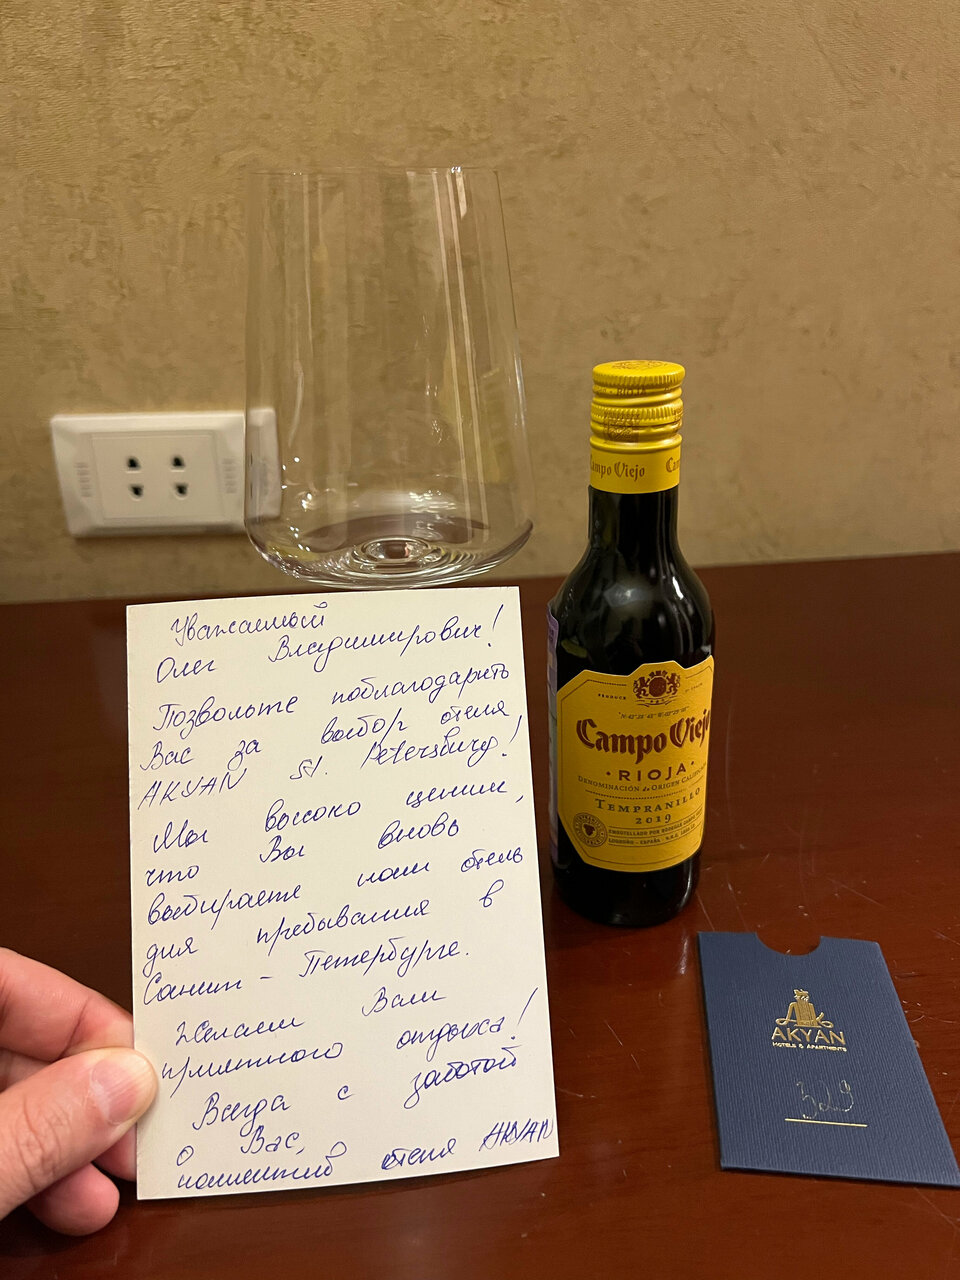 Уважаемый
Олег Владимирович!
Позвольте поблагодарить
Вас за выбор отеля
AKYAN St. Petersburg!
Мы высоко ценим,
что Вы вновь
выбираете наш отель
для пребывания в
Санкт-Петербурге.
Желаем Вам
приятного отдыха!
Всегда с заботой
о Вас,
коллектив отеля AKYAN
Campo Viejo
Campo Viejo
RIOJA
DENOMINACIÓN de ORIGEN CALIFICADA
TEMPRANILLO
2019
EMBOTELLADO POR BODEGAS CAMPO
LOGROÑO - ESPAÑA
AKYAN
HOTELS & APARTMENTS
329